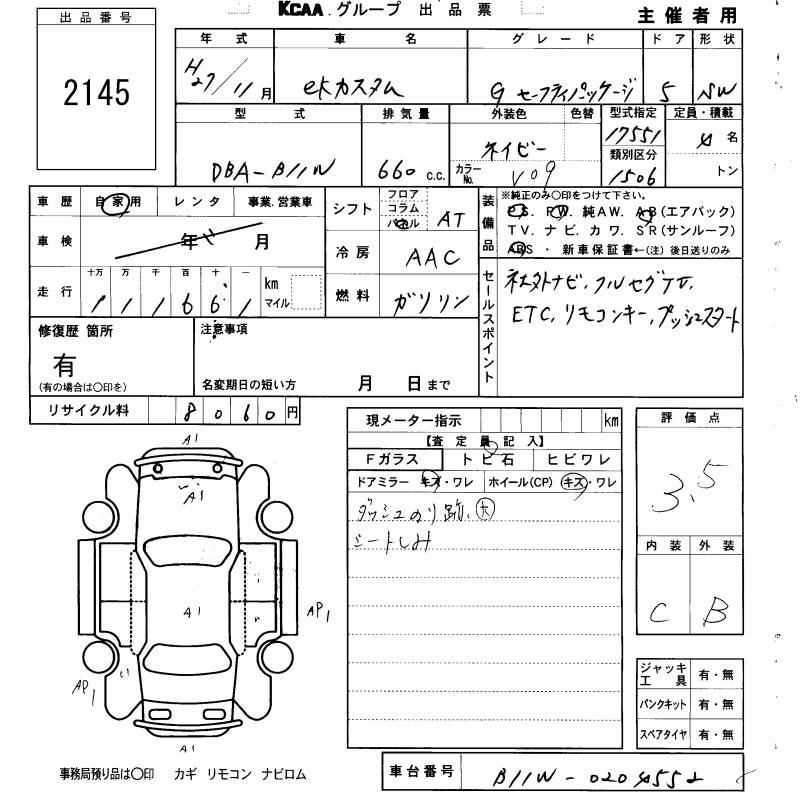 KCAA グループ 出品票
主催者用
出品番号
2145
年式 車名 グレード ドア 形状
H27/11月 eKカスタム G セーフティパッケージ 5 SW
型式 排気量 外装色 色替 型式指定 定員・積載
DBA-B11W 660 c.c. ネイビー 17551 4名
カラーNo. V09 類別区分 1506 トン
車歴 自家用 レンタ 事業.営業車
車検 年 月
走行 十万 万 千 百 十 一
1 1 1 6 6 1 km マイル
シフト フロア コラム パネル AT
冷房 AAC
燃料 ガソリン
装備品 ※純正のみ○印をつけて下さい。
P.S. P.W. 純A.W. A.B(エアバック)
T.V. ナビ. カワ. S.R(サンルーフ)
ABS ・ 新車保証書←(注) 後日送りのみ
セールスポイント
社外ナビ、フルセグTV、
ETC、リモコンキー、プッシュスタート
修復歴 箇所
有
(有の場合は○印を)
注意事項
名変期日の短い方 月 日まで
リサイクル料 8060円
現メーター指示 km
【査定員記入】
Fガラス トビ石 ヒビワレ
ドアミラー キズ・ワレ ホイール(CP) キズ・ワレ
ダッシュのり跡、大
シートしみ
評価点
3.5
内装 外装
C B
ジャッキ工具 有・無
パンクキット 有・無
スペアタイヤ 有・無
A1
A1
A1
AP1
AP1
A1
事務局預り品は○印 カギ リモコン ナビロム
車台番号 B11W-0204552